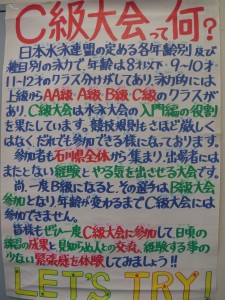 C級大会って何?
日本水泳連盟の定める各年齢別及び
種目別の泳力で、年齢は8才以下・9~10才・
11~12才のクラス分けがしてあり、泳力的には
上級からAA級・A級・B級・C級のクラスがあ
り、C級大会は水泳大会の入門編の役割
を果たしています。競技規則もさほど厳しく
はなく、だれでも参加できる様になっております。
参加者も石川県全体から集まり、出場者には
またとない経験とやる気を出させる大会です。
尚、一度B級になると、その選手はB級大会
参加となり、年齢が変わるまでC級大会には
参加できません。
皆様もぜひ一度C級大会に参加して、日頃の
練習の成果と見知らぬ人との交流、経験する事の
少ない緊張感を体験してみましょう!!
LET'S TRY!